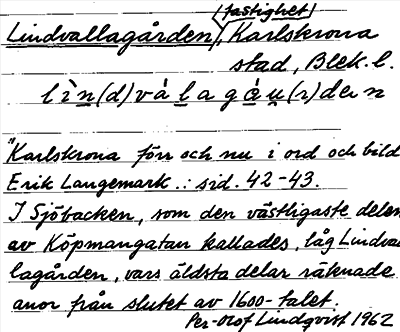 (fastighet)
Lindvallagården, Karlskrona
stad, Blek. l.
lìn(d)vàlagå̀u(r)den
"Karlskrona förr och nu i ord och bild
Erik Langemark.: sid. 42-43.
I Sjöbacken, som den västligaste delen
av Köpmangatan kallades, låg Lindval
lagården, vars äldsta delar räknade
anor från slutet av 1600-talet.
Per-Olof Lindqvist 1962